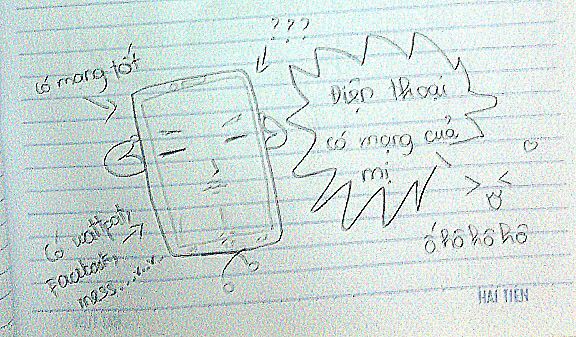 ???
có mạng tốt
Điện thoại
có mạng của
mị
Có wattpat,
Facebook,
mess.......
ố hô hô hô
HẢI TIẾN